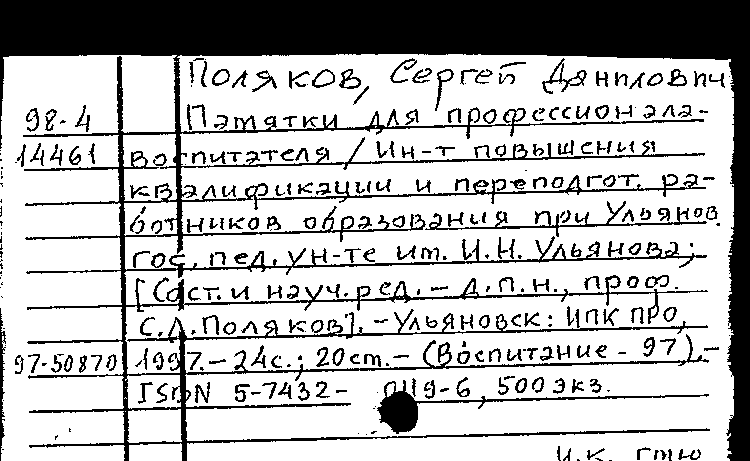 Поляков, Сергей Данилович
98-4 Памятки для профессионала-
14461 воспитателя / Ин-т повышения
квалификации и переподгот. ра-
ботников образования при Ульянов.
гос. пед. ун-те им. И.Н. Ульянова;
[Сост. и науч. ред. - д.п.н., проф.
С.Д. Поляков]. - Ульяновск: ИПК ПРО,
97-50870 1997. - 24с.; 20см. - (Воспитание - 97). -
ISBN 5-7432- 9-6, 500 экз.